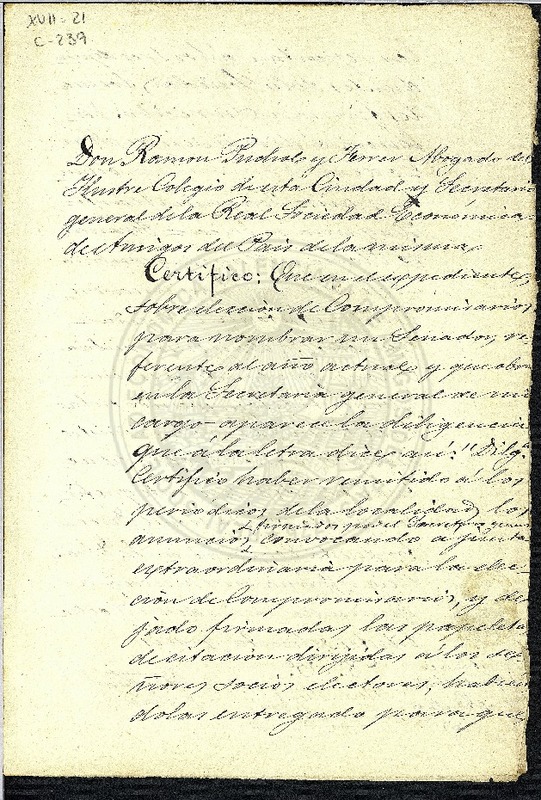 XVII-21
C-239
Don Ramon Pucholo y Ferrer Abogado del
Ilustre Colegio de esta Ciudad y Secretario
general de la Real Sociedad Económica
de Amigos del Pais de la misma,
Certifico: Que en el espediente
sobre eleccion de Compromisarios
para nombrar un Senador, re
ferente al año actual y que obra
en la Secretaria general de mi
cargo aparece la diligencia
que á la letra dice asi: "Dilg.ª
Certifico haber remitido á los
periódicos de la localidad los
firmados por el Secretario general
anuncios convocando a junta
extraordinaria para la elec
ción de Compromisarios, y de
jado firmadas las papeletas
de citacion dirijidas á los se
ñores socios electores, habien
dolas entregado para que